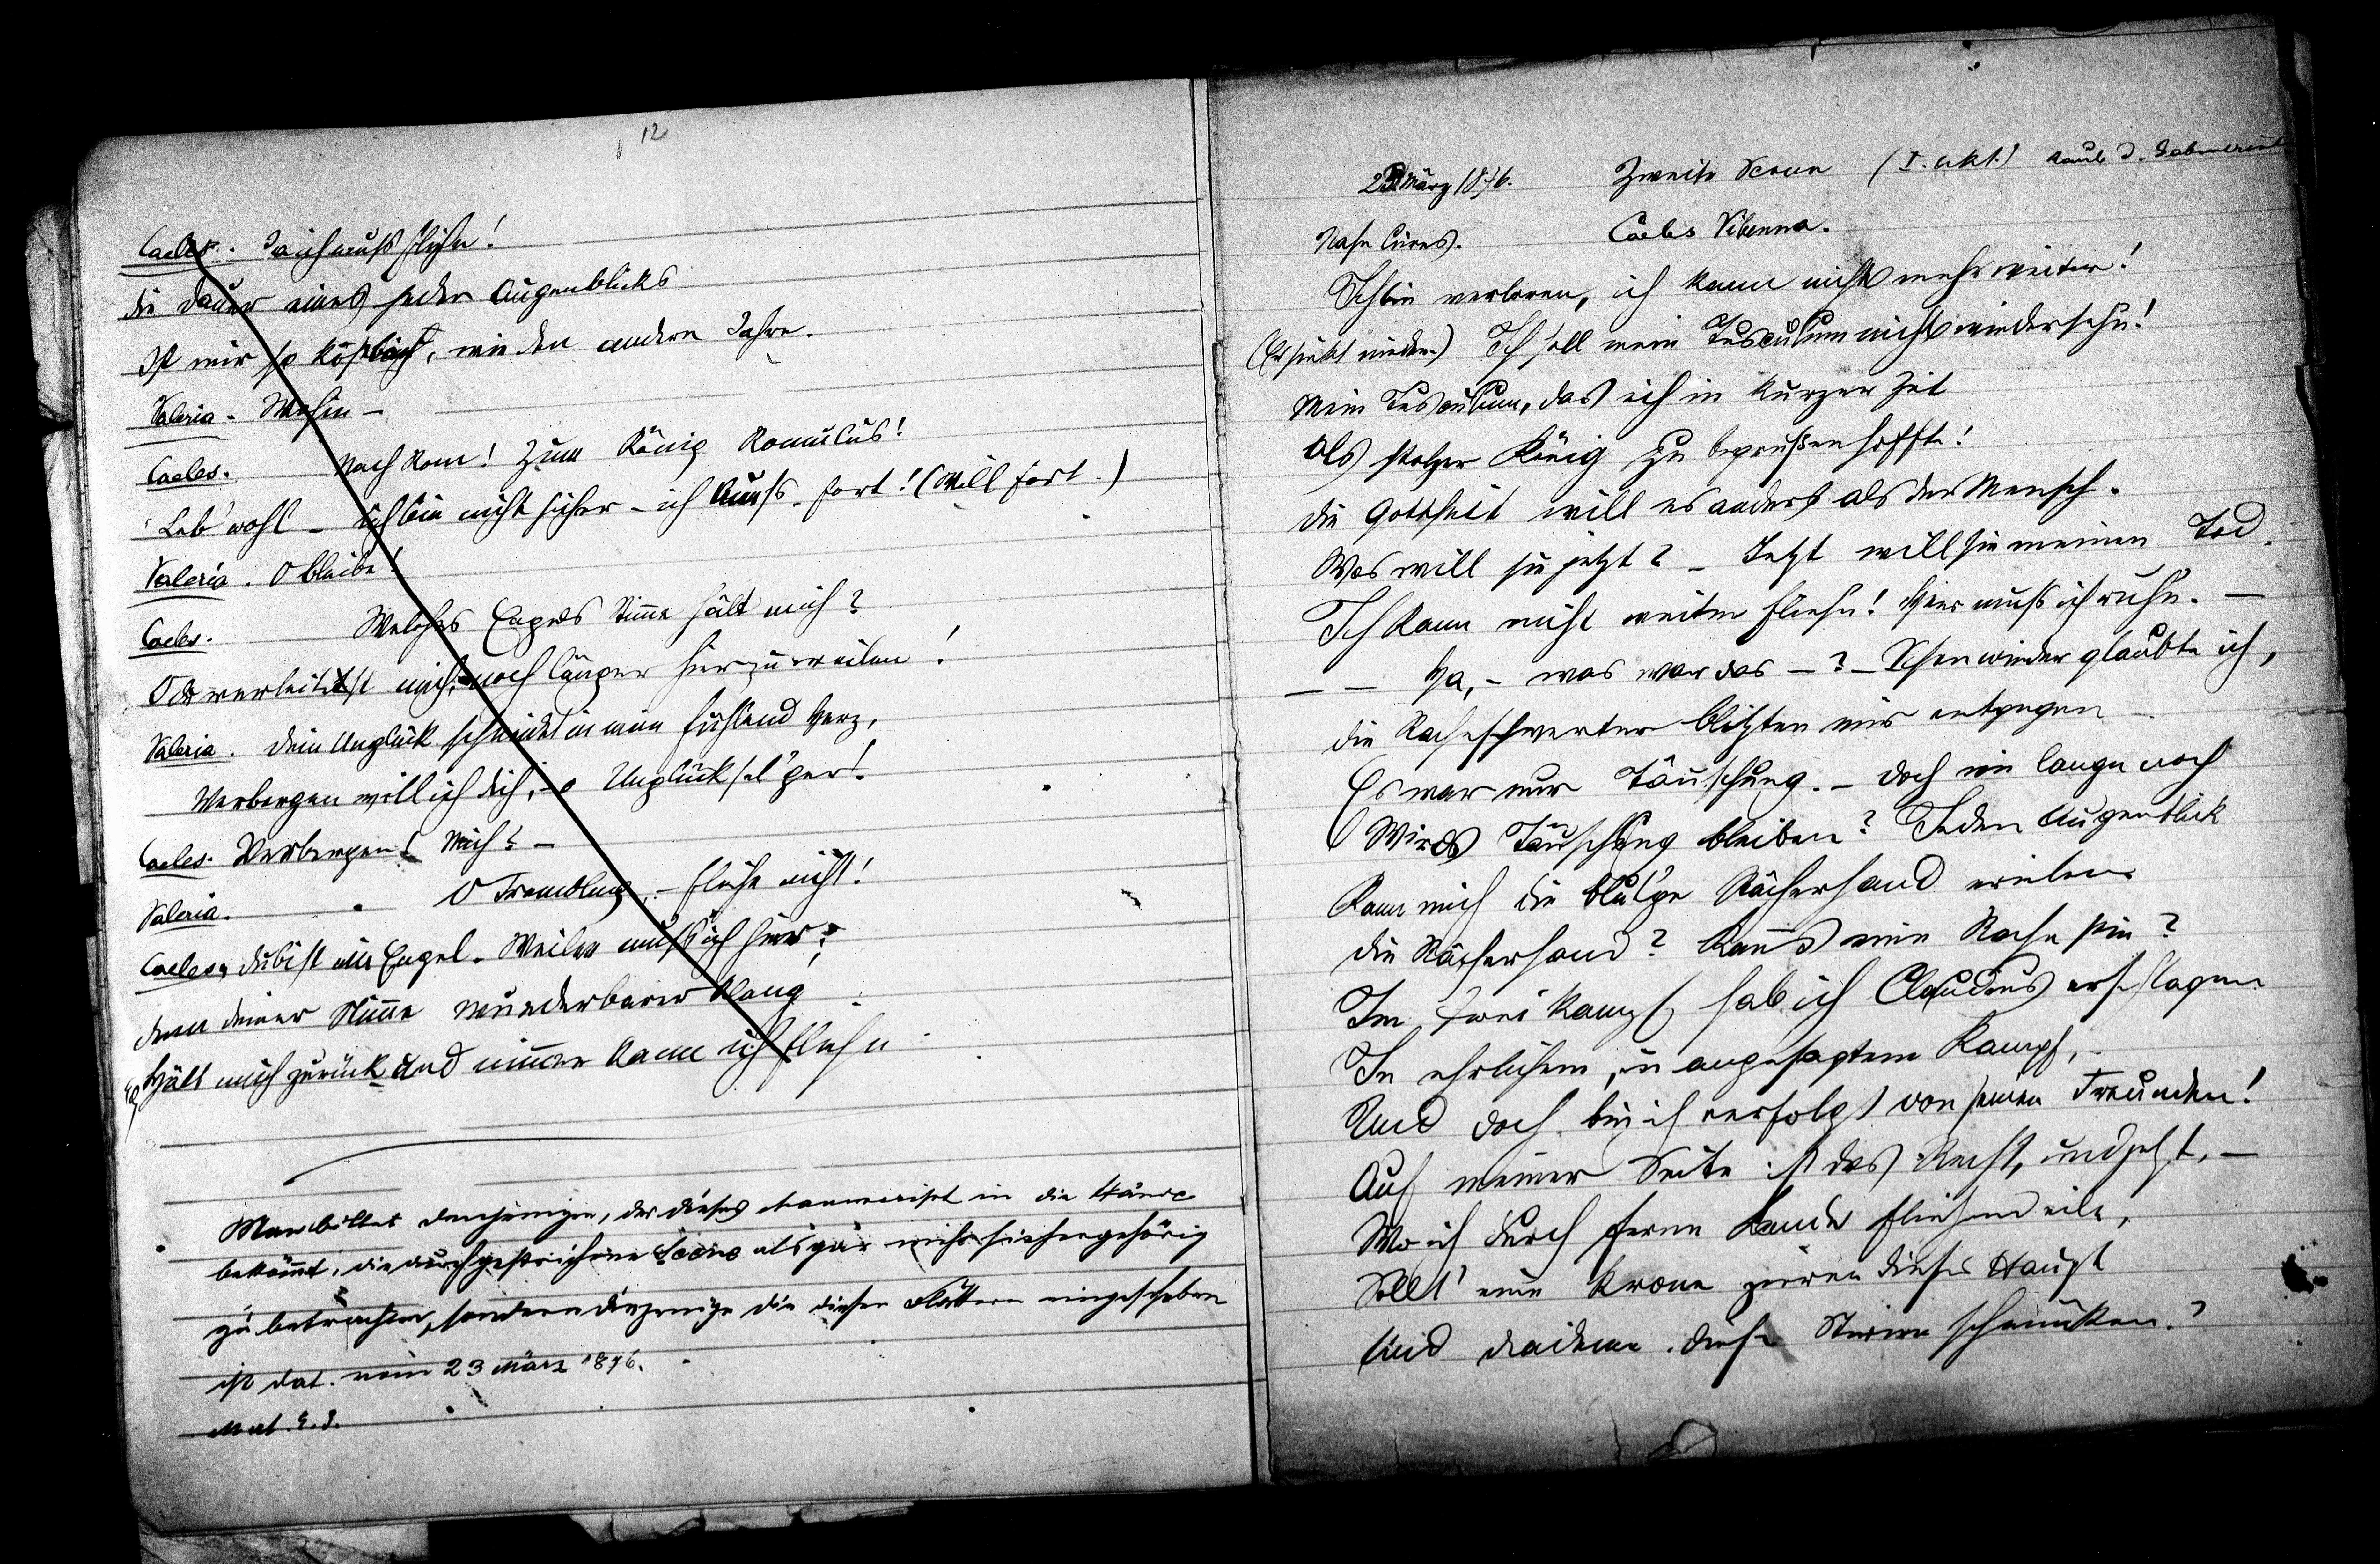 12
Caeles. Ja ich muß fliehn!
Die Dauer eines jeden Augenblicks
Ist mir so kostbar, wie den andern Jahre.
Valeria. Wohin –
Caeles. Nach Rom! Zum König Romulus!
Leb' wohl – Ich bin nicht sicher – ich muß fort! (Will fort.)
Valeria. O bleibe!
Caeles. Welches Engels Stimme hält mich?
O du verleitest mich, noch länger hier zu weilen!
Valeria. Dein Unglück schneidet in mein fühlend Herz,
Verbergen will ich dich, – o Unglücksel'ger!
Caeles. Verbergen? Mich? –
Valeria. O Fremdling, – fliehe nicht!
Caeles. Du bist ein Engel. Weilen muß ich hier;
Denn deiner Stimme wunderbarer Klang
Hält mich zurück und nimmer kann ich fliehn
Man bittet denjenigen, der dieses Manuscript in die Hände
bekömmt, die durchgestrichene Scene als gar nicht hierhergehörig
zu betrachten, sondern diejenige die diesen Blättern eingeschoben
ist dat. vom 23 März 1876.
23 März 1876. Zweite Scene (I. Akt.) Raub d. Sabinerinnen
Nahe Cures. Caeles Vibenna.
Ich bin verloren, ich kann nicht mehr weiter!
(Er sinkt nieder.) Ich soll mein Tusculum nicht wiedersehn!
Mein Tusculum, das ich in kurzer Zeit
Als stolzer König zu begrüßen hoffte!
Die Gottheit will es anders als der Mensch.
Was will sie jetzt? – Jetzt will sie meinen Tod.
Ich kann nicht weiter fliehn! Hier muß ich ruhn. –
– – Ha, – was war das – ? – Schon wieder glaubte ich,
die Racheschwerter blitzten mir entgegen –
Es war nur Täuschung. – Doch wie lange noch
Wirds Täuschung bleiben? Jeden Augenblick
Kann mich die blut'ge Rächerhand ereilen
Die Rächerhand? Kann's eine Rache sein?
Im Zweikampf hab ich Claudius erschlagen
In ehrlichem, in angesagtem Kampf, –
Und doch bin ich verfolgt von seinen Freunden!
Auf meiner Seite ist das Recht, und jetzt, –
Wo ich durch ferne Lande fliehend eile,
Sollt' eine Krone zieren dieses Haupt
Und Diademe diese Stirne schmücken?